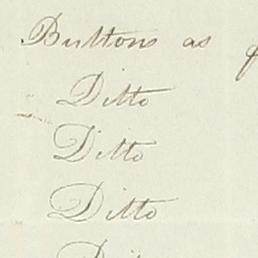 Buttons as
Ditto
Ditto
Ditto
Ditto